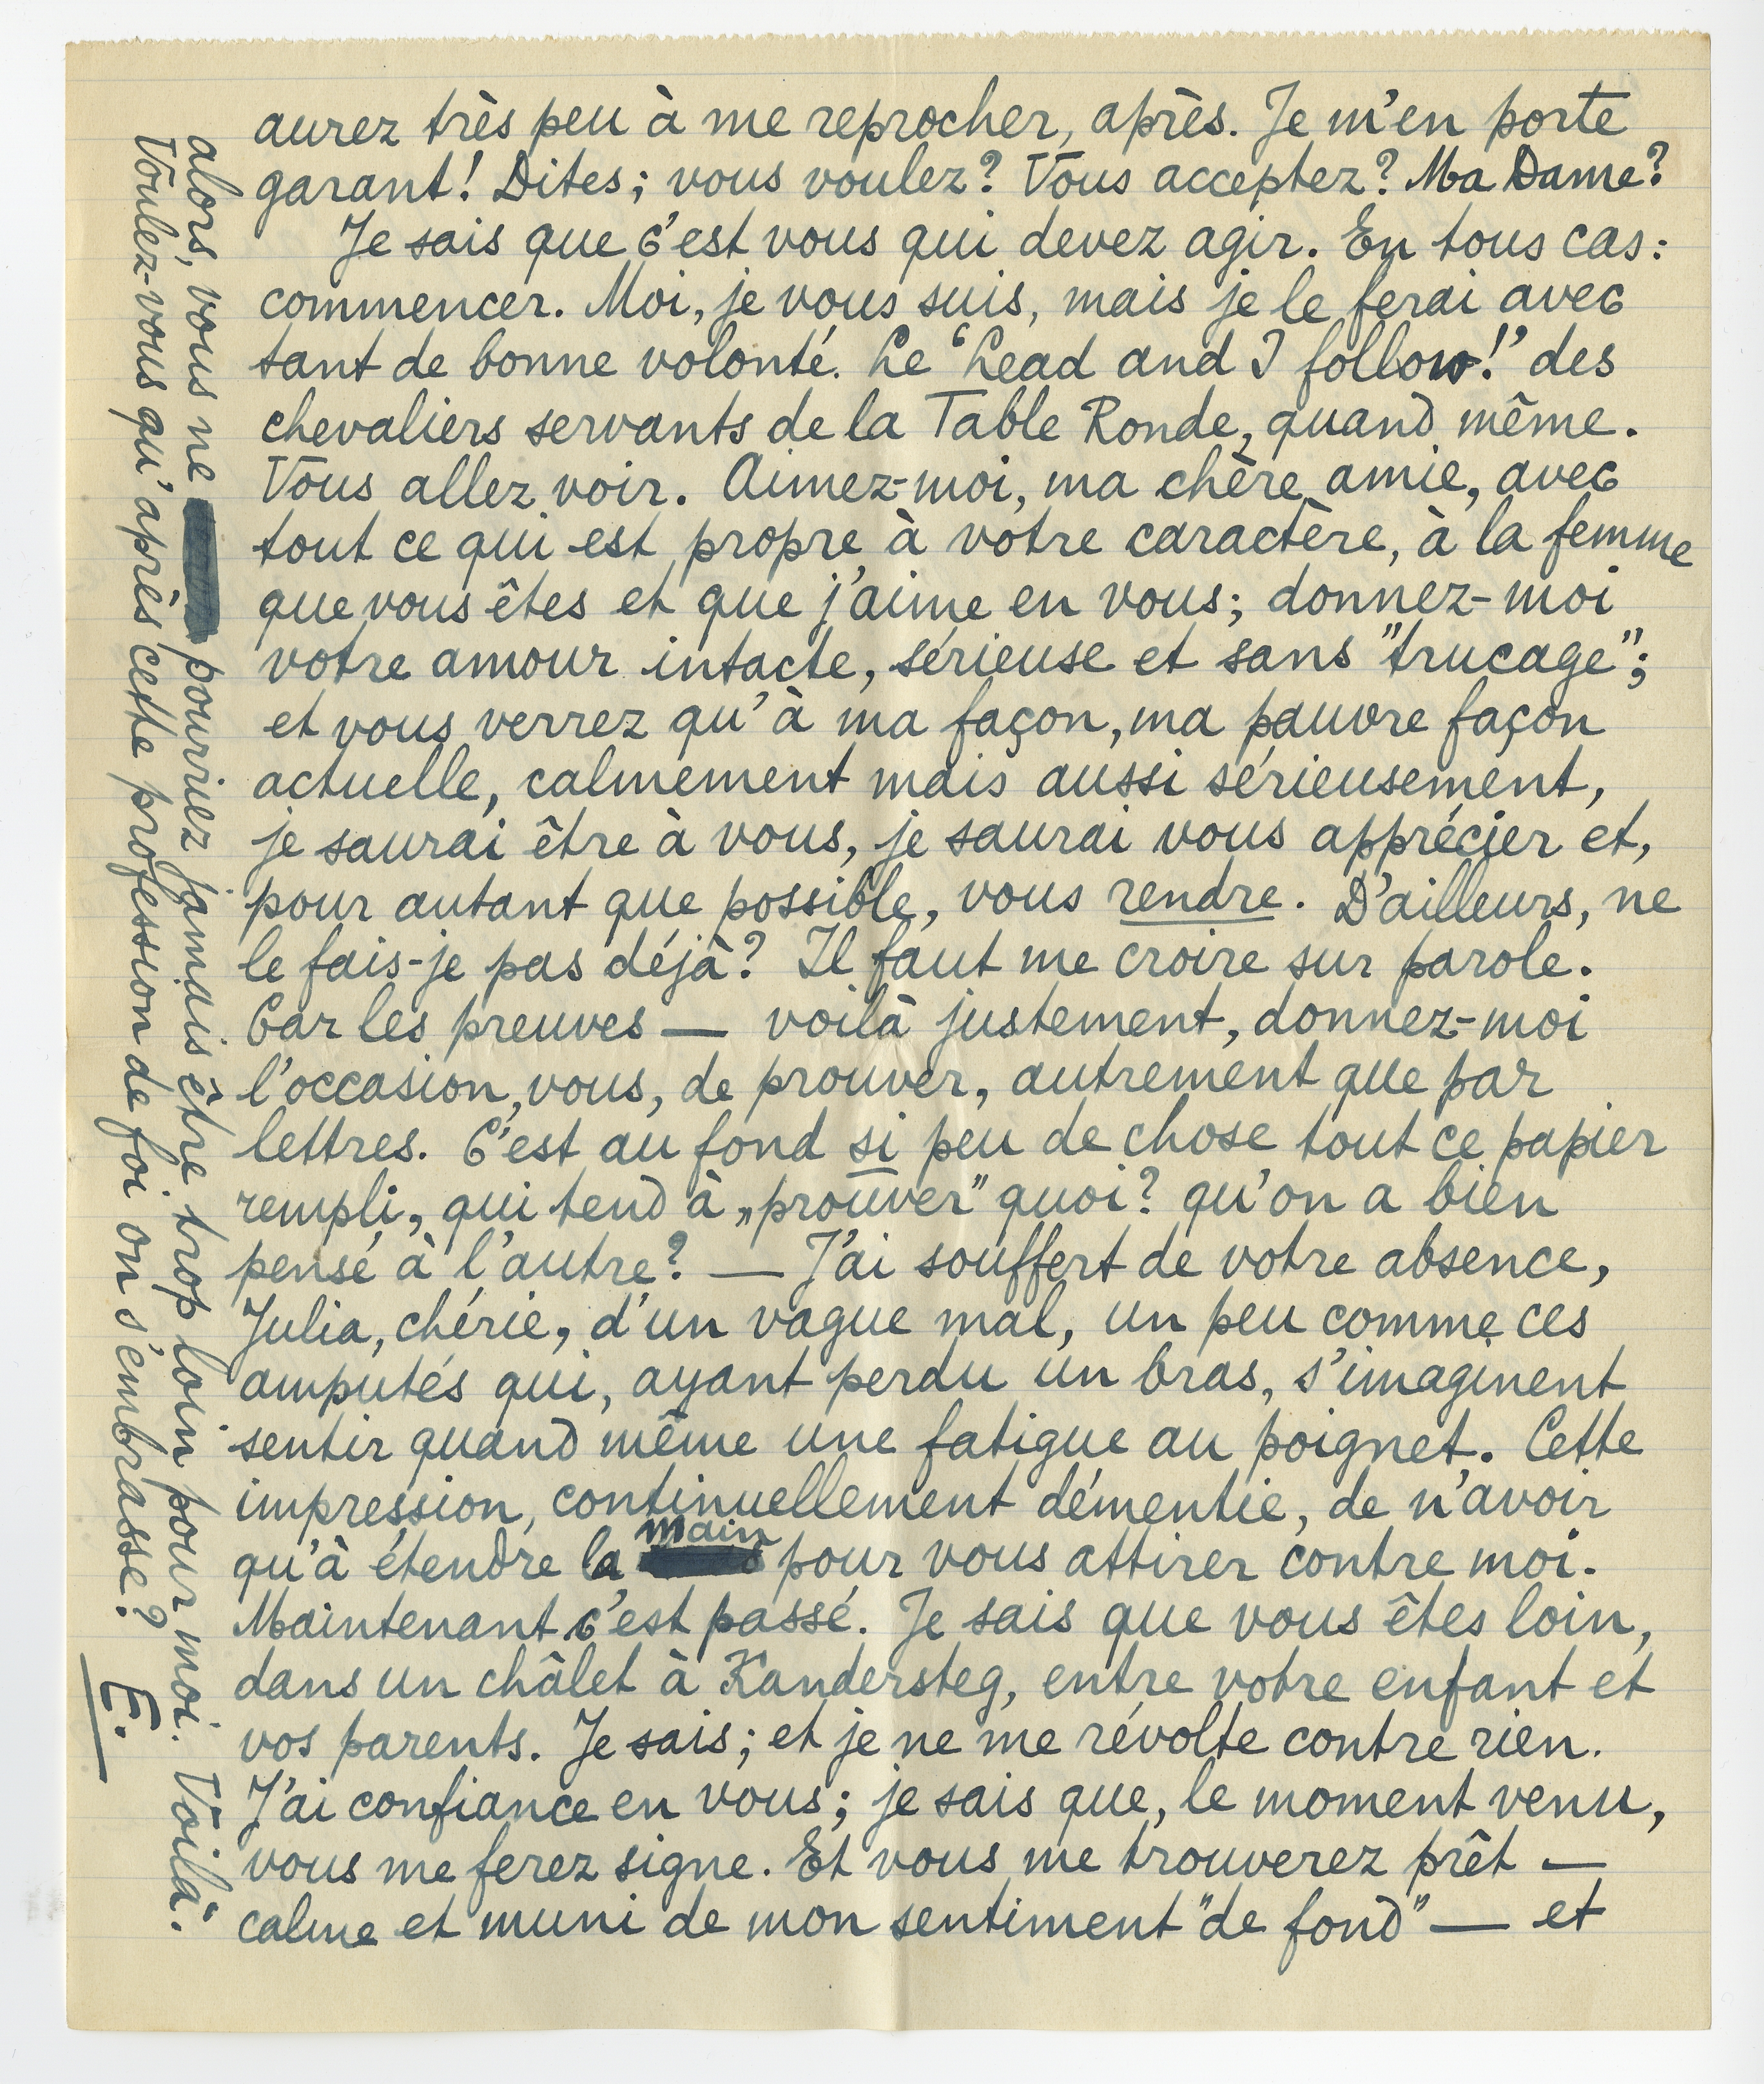 aurez très peu à me reprocher, après. Je m'en porte
garant! Dites; vous voulez? Vous acceptez? Ma Dame?
Je sais que c'est vous qui devez agir. En tous cas:
commencer. Moi, je vous suis, mais je le ferai avec
tant de bonne volonté. Le "Lead and I follow!" des
chevaliers servants de la Table Ronde, quand même.
Vous allez voir. Aimez-moi, ma chère amie, avec
tout ce qui est propre à votre caractère, à la femme
que vous êtes et que j'aime en vous; donnez-moi
votre amour intacte, sérieuse et sans "trucage";
et vous verrez qu'à ma façon, ma pauvre façon
actuelle, calmement mais aussi sérieusement,
je saurai être à vous, je saurai vous apprécier et,
pour autant que possible, vous rendre. D'ailleurs, ne
le fais-je pas déjà? Il faut me croire sur parole.
Car les preuves — voilà justement, donnez-moi
l'occasion, vous, de prouver, autrement que par
lettres. C'est au fond si peu de chose tout ce papier
rempli, qui tend à „prouver" quoi? qu'on a bien
pensé à l'autre? — J'ai souffert de votre absence,
Julia, chérie, d'un vague mal, un peu comme ces
amputés qui, ayant perdu un bras, s'imaginent
sentir quand même une fatigue au poignet. Cette
impression, continuellement démentie, de n'avoir
qu'à étendre la main pour vous attirer contre moi.
Maintenant c'est passé. Je sais que vous êtes loin,
dans un châlet à Kandersteg, entre votre enfant et
vos parents. Je sais; et je ne me révolte contre rien.
J'ai confiance en vous; je sais que, le moment venu,
vous me ferez signe. Et vous me trouverez prêt —
calme et muni de mon sentiment "de fond" — et
alors, vous ne pourriez jamais être trop loin pour moi. Voilà.
Voulez-vous qu'après cette profession de foi on s'embrasse?
E.